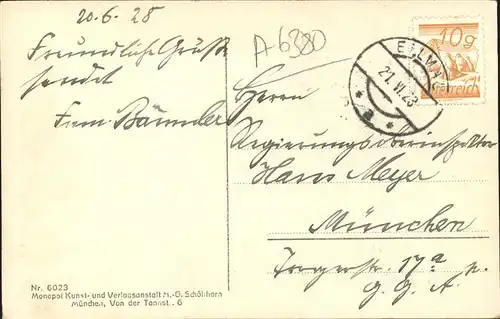 20.6.28
Freundliche Grüße
sendet
Fam. Bäumler
A6380
ELLMAU
21.VI.28
10g
Österreich
Herrn
Regierungsoberinspektor
Hans Meyer
München
17a
G. G. A.
Nr. 6023
Monopol Kunst- und Verlagsanstalt A.-G. Schöllhorn
München, Von der Tannst. 6